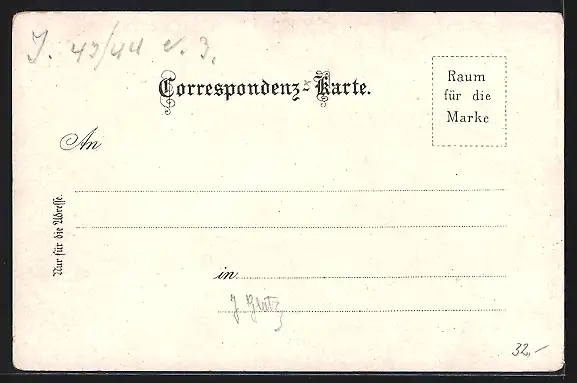 J. 43/44 v. 3.
Correspondenz-Karte.
Raum
für die
Marke
An
Nur für die Adresse.
in
32,-